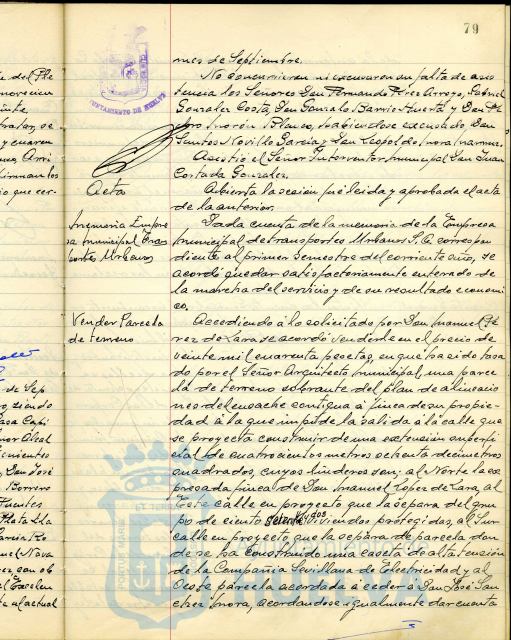 79
mes de Septiembre.
No concurrieron ni excusaron su falta de asis
tencia los Señores Don Fernando Pérez Arroyo, Gabriel
Gonzalez Costa, Don Gonzalo Barrio Huerta y Don Pe
dro Morón Blanco, habiendose excusado Don
Santos Novillo García y Don Leopoldo Mora
Asistió el Señor Interventor Municipal Don Juan
Cortada Gonzalez.
Acta
Abierta la sesion fué leida y aprobada el acta
de la anterior.
Memoria Empre
sa Municipal Trans
portes Urbanos
Dada cuenta de la memoria de la Empresa
Municipal de transportes Urbanos S.A. correspon
diente al primer semestre del corriente año, se
acordó quedar satisfactoriamente enterado de
la marcha del servicio y de su resultado economi
co.
Vender Parcela
de terreno
Accediendo á lo solicitado por Don Manuel Pé
rez de Lara se acordó venderle en el precio de
veinte mil cuarenta pesetas, en que ha sido tasa
do por el Señor Arquitecto Municipal una parce
la de terreno sobrante del plan de alineacio
nes del ensache contigua á finca de su propie
dad á la que impide la salida á la calle que
se proyecta construir de una extension superfi
cial de cuatrocientos metros ochenta decimetros
cuadrados, cuyos linderos son; al Norte la ex
presada finca de Don Manuel Lopez de Lara, al
Este calle en proyecto que la separa del gru
po de ciento setenta y dos viviendas protegidas, al Sur
calle en proyecto que la separa de parcela don
de se ha construido una caseta de alta tensión
de la Compañia Sevillana de Electricidad y al
Oeste parcela acordada á ceder á Don José San
chez Mora, acordandose igualmente dar cuenta